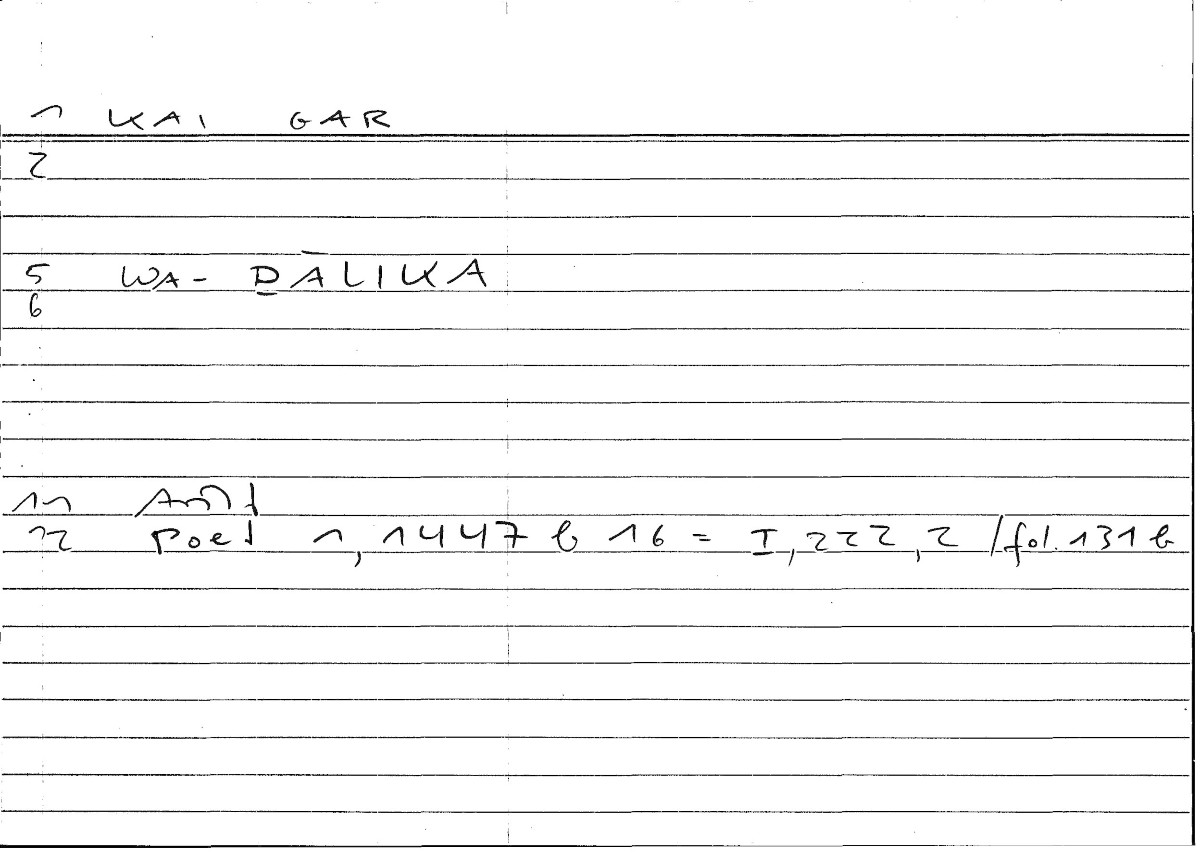 1 KAI GAR
2
5 WA- ḎĀLIKA
6
11 Arist
12 Poet 1, 1447 b 16 = I, 222, 2 /fol. 131 b